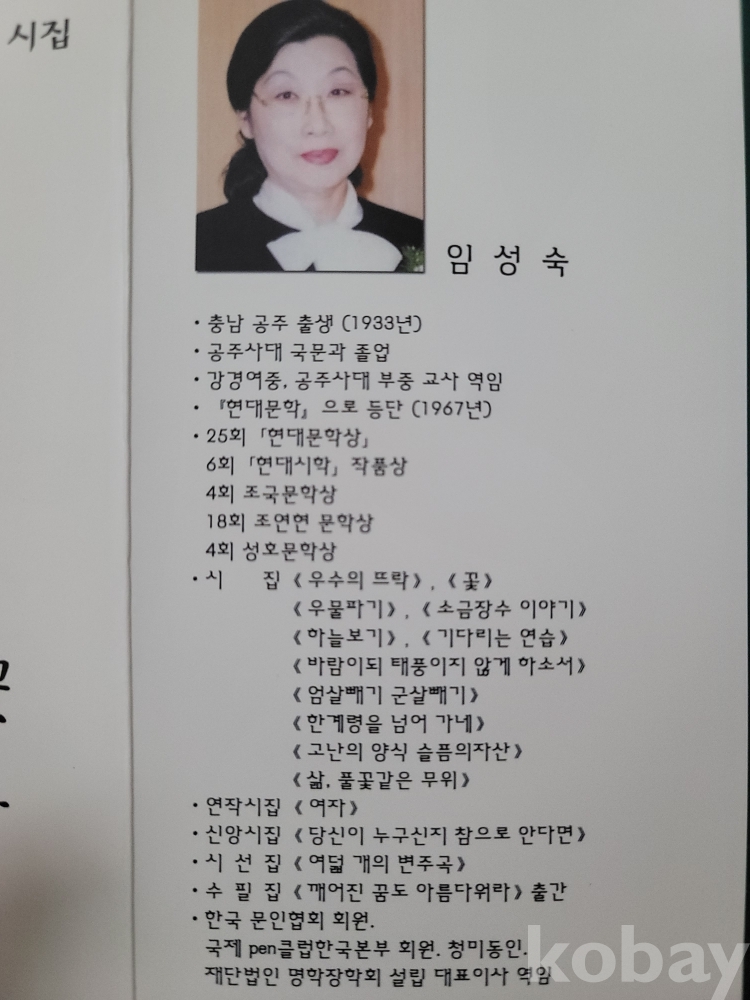 시집
임 성 숙
· 충남 공주 출생 (1933년)
· 공주사대 국문과 졸업
· 강경여중, 공주사대 부중 교사 역임
· 『현대문학』으로 등단 (1967년)
· 25회 「현대문학상」
6회 「현대시학」 작품상
4회 조국문학상
18회 조연현 문학상
4회 성호문학상
· 시 집 《우수의 뜨락》, 《꽃》
《우물파기》, 《소금장수 이야기》
《하늘보기》, 《기다리는 연습》
《바람이되 태풍이지 않게 하소서》
《엄살빼기 군살빼기》
《한계령을 넘어 가네》
《고난의 양식 슬픔의자산》
《삶, 풀꽃같은 무위》
· 연작시집 《여자》
· 신앙시집 《당신이 누구신지 참으로 안다면》
· 시 선 집 《여덟 개의 변주곡》
· 수 필 집 《깨어진 꿈도 아름다워라》 출간
· 한국 문인협회 회원.
국제 pen클럽한국본부 회원. 청미동인.
재단법인 명학장학회 설립 대표이사 역임
kobay